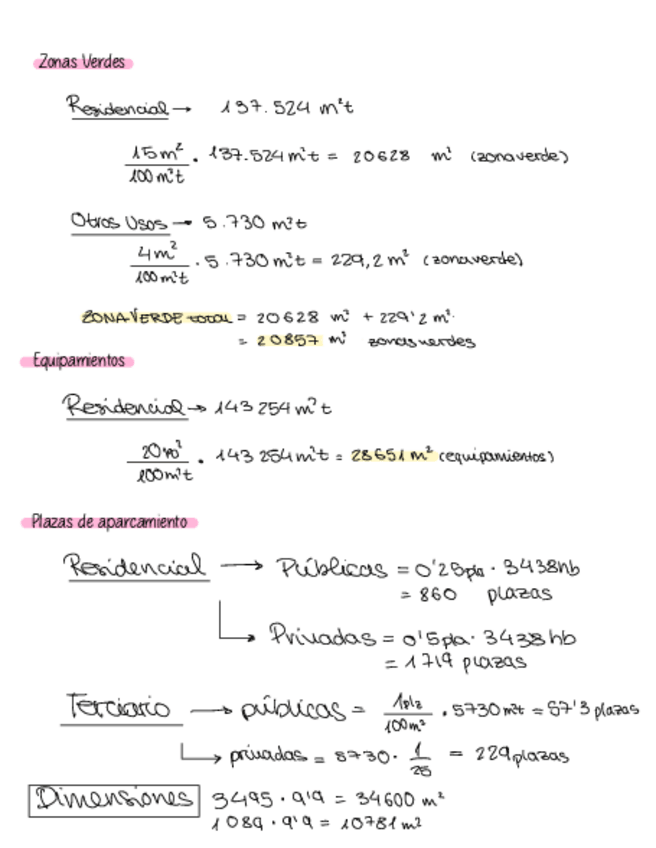 Zonas Verdes
Residencial → 137.524 m²t
15m²/100m²t · 137.524m²t = 20628 m² (zona verde)
Otros Usos → 5.730 m²t
4m²/100m²t · 5.730m²t = 229,2 m² (zona verde)
ZONA VERDE total = 20628 m² + 229'2 m²
= 20857 m² zonas verdes
Equipamientos
Residencial → 143254m²t
20m²/100m²t · 143254m²t = 28651 m² (equipamientos)
Plazas de aparcamiento
Residencial → Públicas = 0'25pla · 3438hb
= 860 plazas
→ Privadas = 0'5pla · 3438hb
= 1719 plazas
Terciario → públicas = 1plz/100m² · 5730m²t = 57'3 plazas
→ privadas = 5730 · 1/25 = 229plazas
Dimensiones 3495 · 9'9 = 34600 m²
1089 · 9'9 = 10781m²